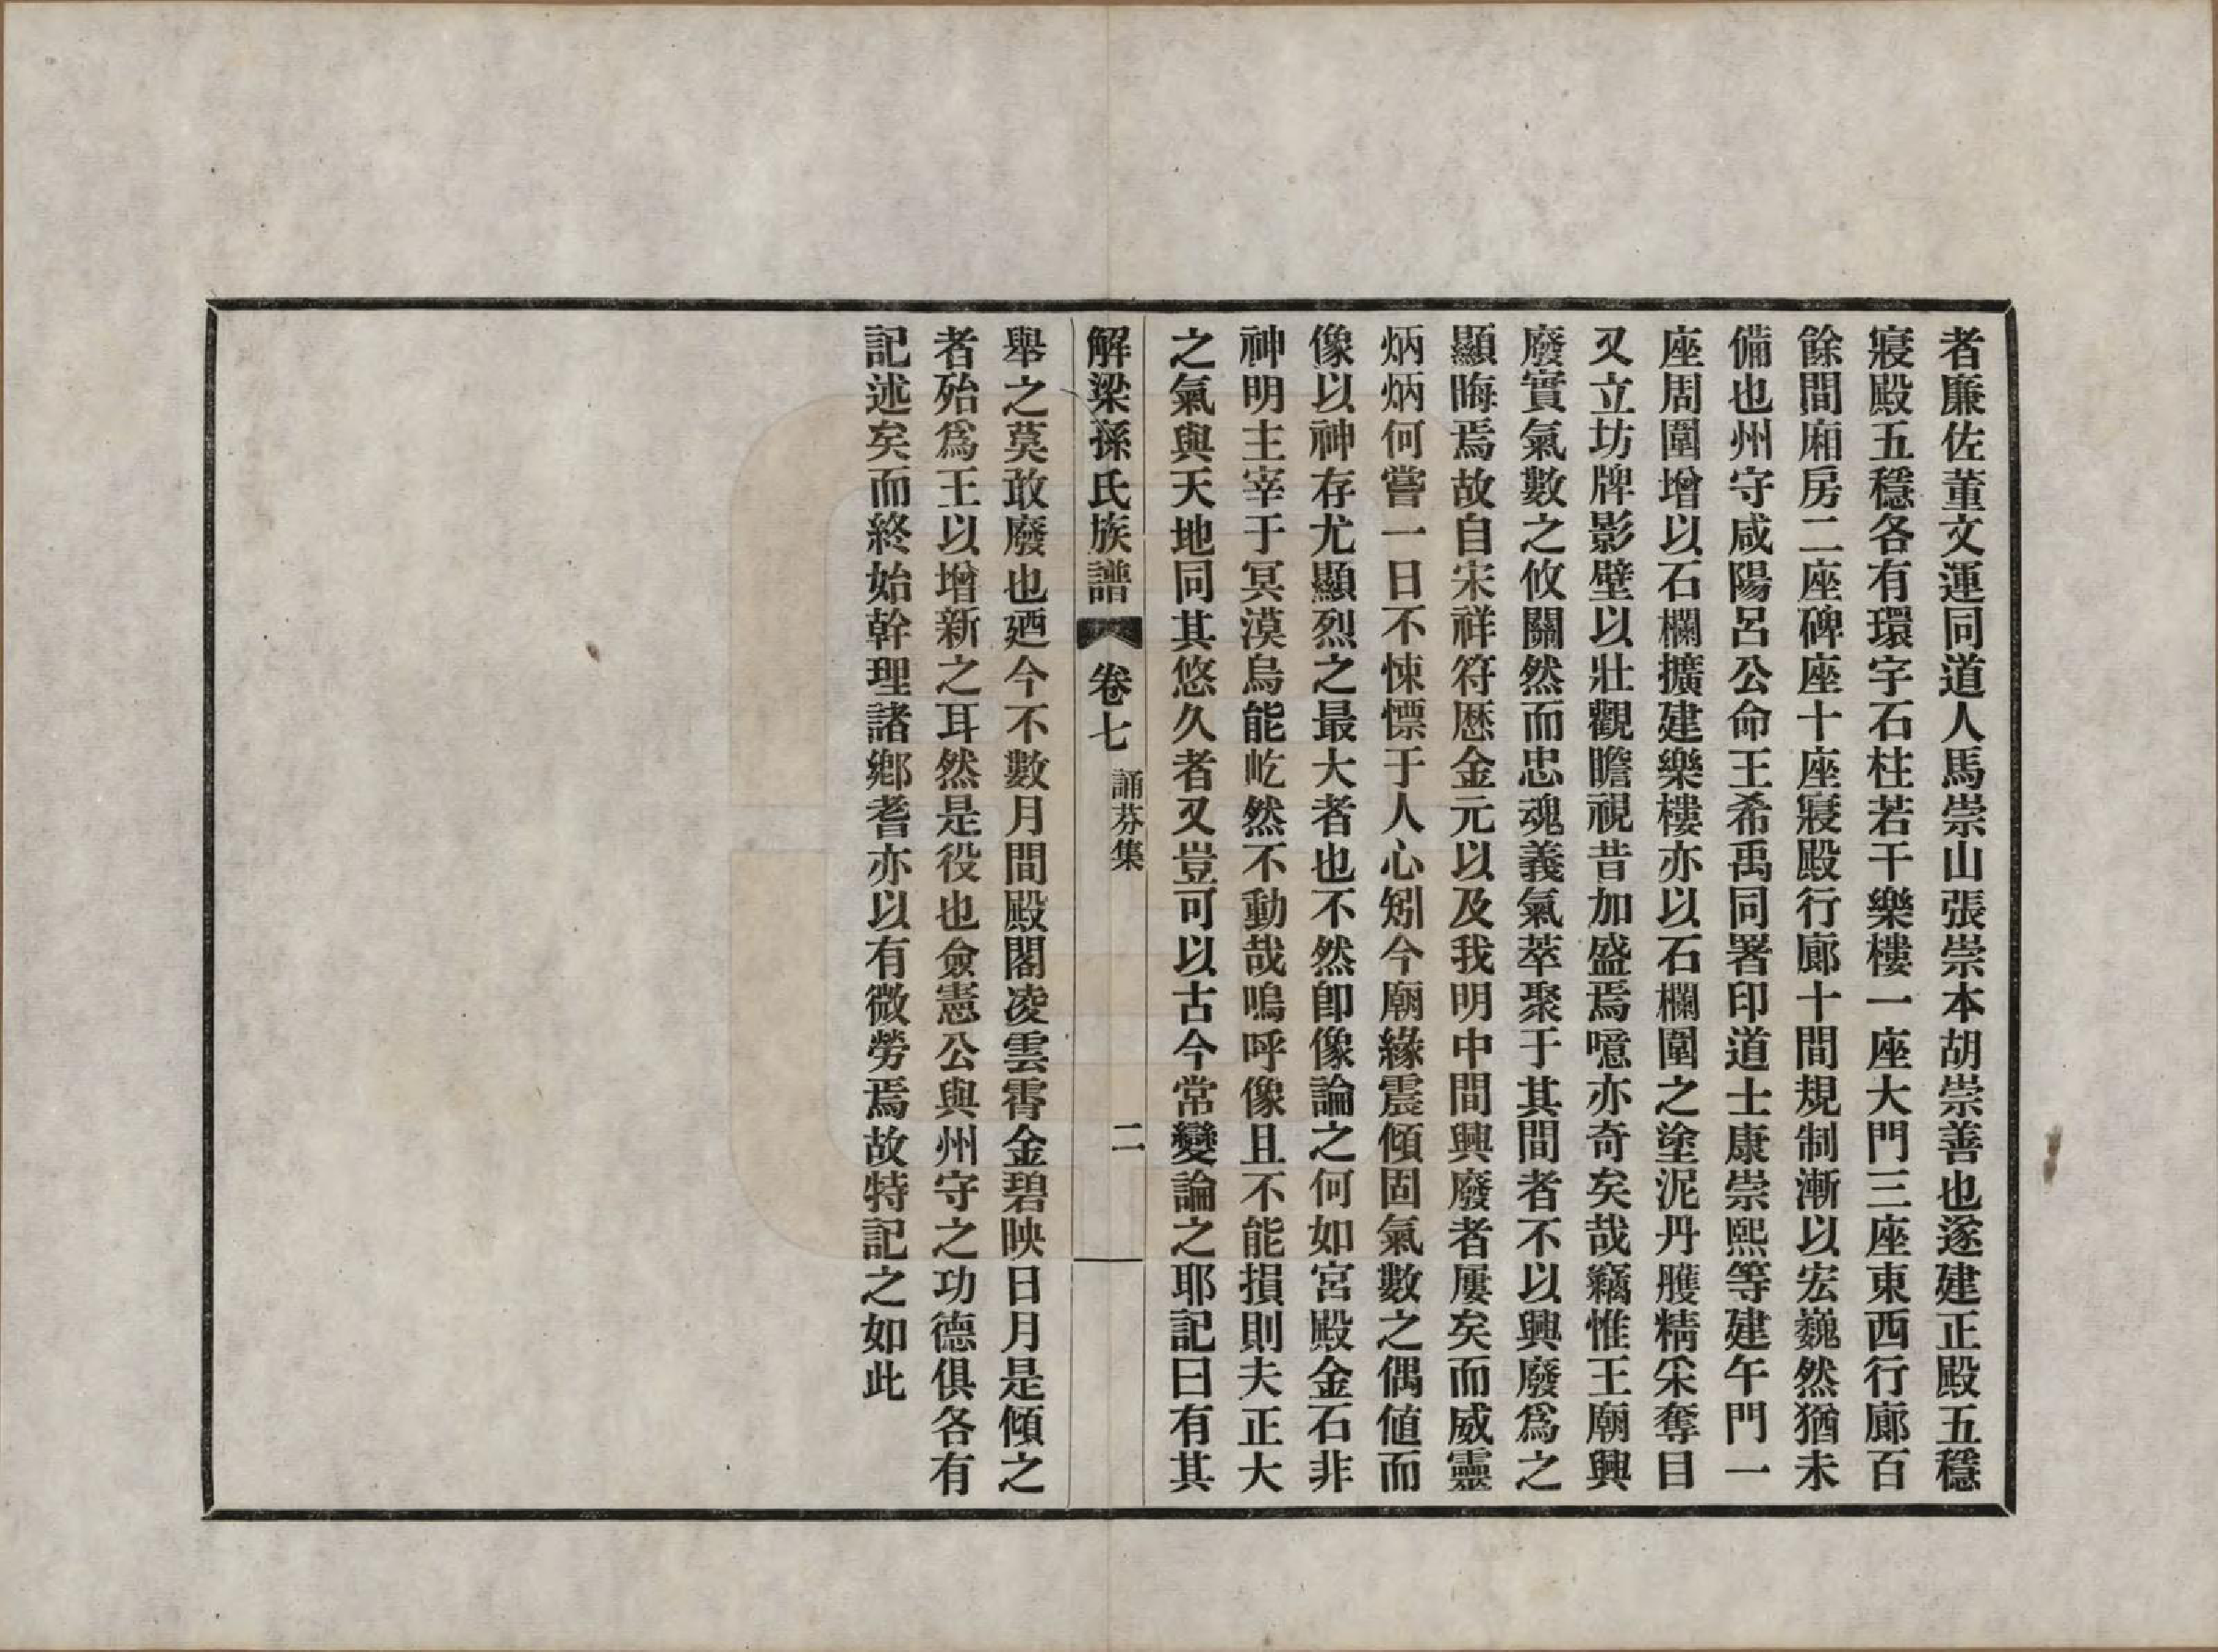 者廉佐董文運同道人馬崇山張崇本胡崇善也遂建正殿五穩
寢殿五穩各有環宇石柱若干樂樓一座大門三座東西行廊百
餘間廂房二座碑座十座寢殿行廊十間規制漸以宏巍然猶未
備也州守咸陽呂公命王希禹同署印道士康崇熙等建午門一
座周圍增以石欄擴建樂樓亦以石欄圍之塗泥丹雘精采奪目
又立坊牌影壁以壯觀瞻視昔加盛焉噫亦奇矣哉竊惟王廟興
廢實氣數之攸關然而忠魂義氣萃聚于其間者不以興廢爲之
顯晦焉故自宋祥符歷金元以及我明中間興廢者屢矣而威靈
炳炳何嘗一日不悚慄于人心矧今廟緣震傾固氣數之偶値而
像以神存尤顯烈之最大者也不然卽像論之何如宮殿金石非
神明主宰于冥漠烏能屹然不動哉嗚呼像且不能損則夫正大
之氣與天地同其悠久者又豈可以古今常變論之耶記曰有其
解梁孫氏族譜 卷七 誦芬集 二
舉之莫敢廢也廼今不數月間殿閣凌雲霄金碧映日月是傾之
者殆爲王以增新之耳然是役也僉憲公與州守之功德俱各有
記述矣而終始幹理諸鄉耆亦以有微勞焉故特記之如此